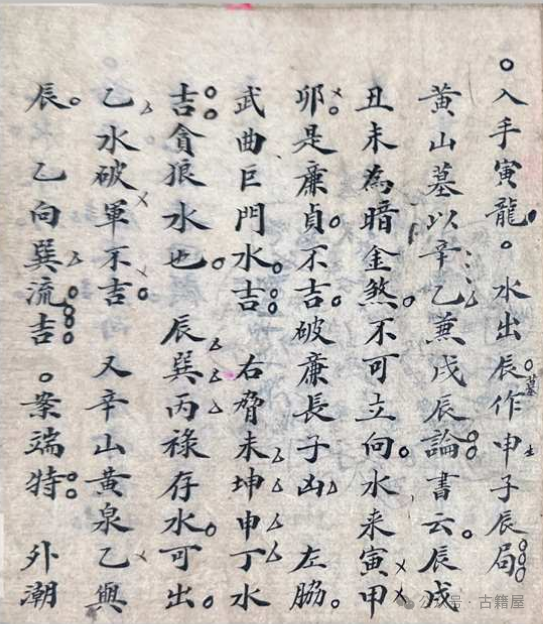 入手寅龍。水出辰作申子辰局
墓
生
黄山墓以辛乙兼戌辰論書云辰戌
丑未為暗金煞不可立向水来寅甲
卯是廉貞不吉破廉長子凶 左脇
武曲巨門水吉 右脅未坤申丁水
吉貪狼水也 辰巽丙祿存水可出
乙水破軍不吉 又辛山黄泉乙與
辰 乙向巽流吉 案端特 外潮
公众号·古籍屋